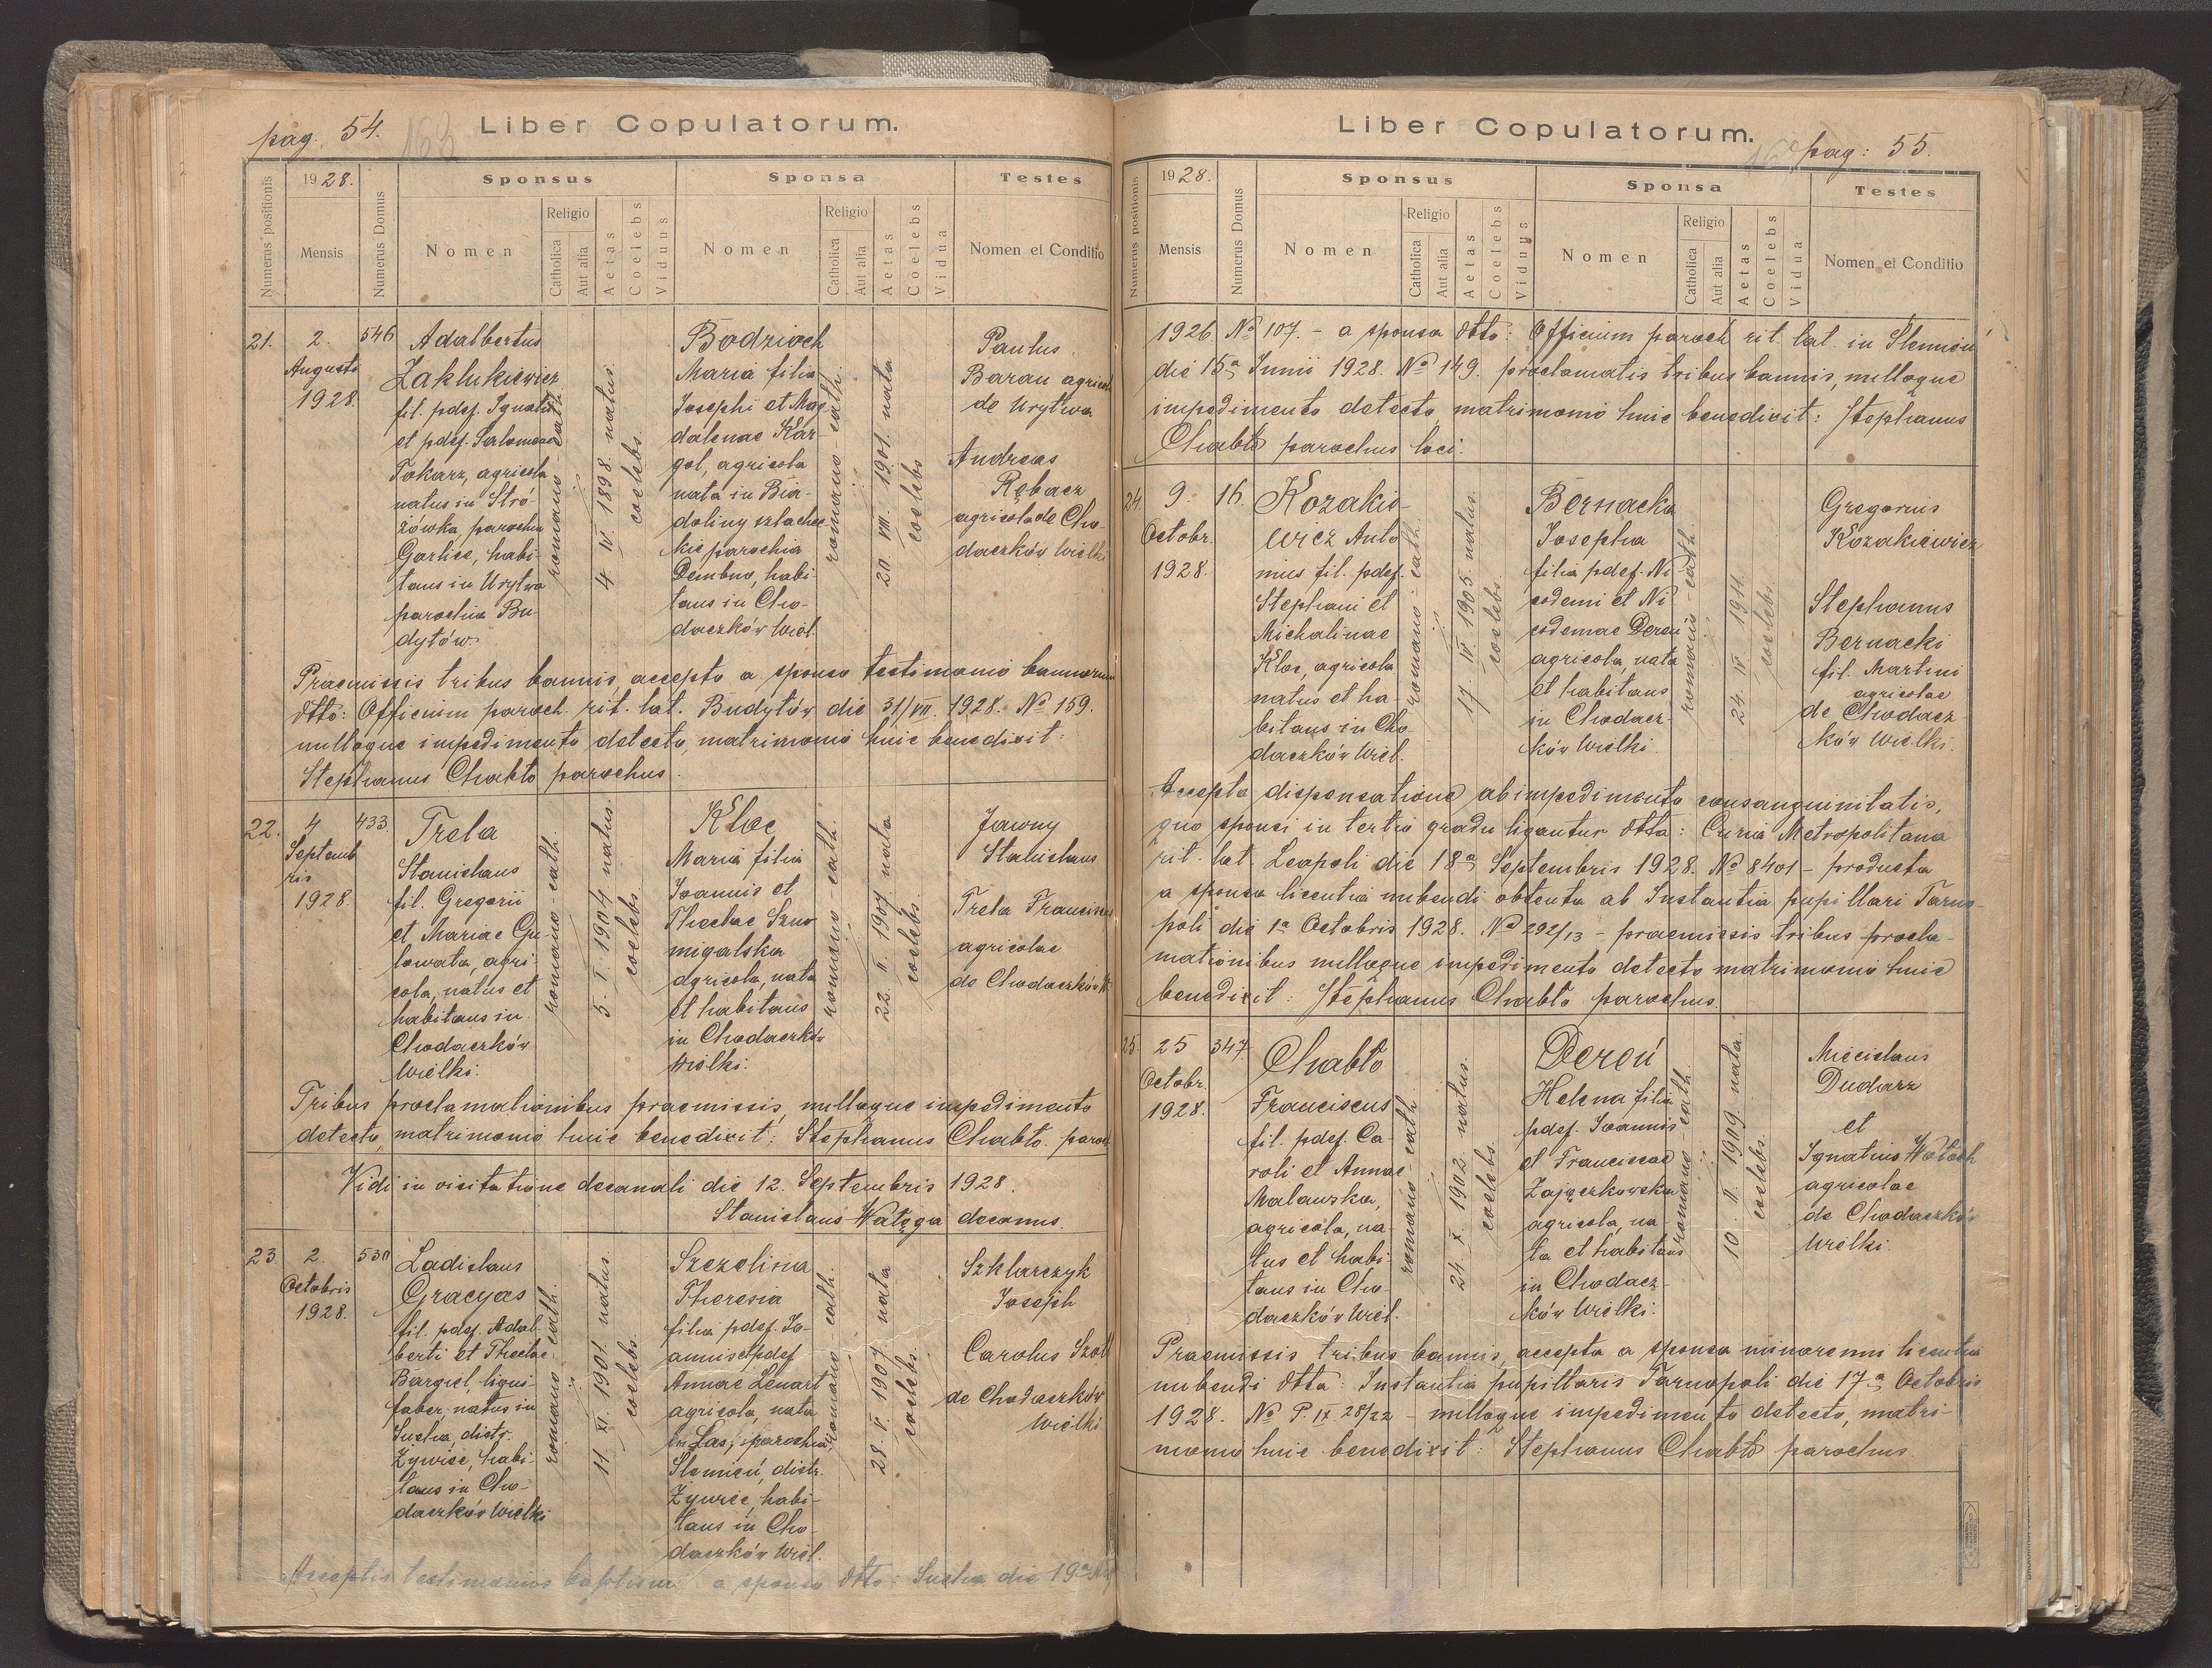 pag. 54.
163
Liber Copulatorum.
Numerus positionis
1928.
Mensis
Numerus Domus
Sponsus
Nomen
Religio
Catholica
Aut alia
Aetas
Coelebs
Viduus
Sponsa
Nomen
Religio
Catholica
Aut alia
Aetas
Coelebs
Vidua
Testes
Nomen et Conditio
21.
2.
Augusti
1928.
546
Adalbertus
Zaklukiewicz
fil. pdef. Ignatii
et pdef. Salomeae
Tokarz, agricola
natus in Stró
żówka, parochia
Gorlice, habi-
tans in Urytwa
parochia Bu-
dytów.
romano-cath.
4. IV. 1898. natus.
coelebs.
Bodzioch
Maria filia
Josephi et Mag-
dalenae Kar-
gol, agricola
nata in Bia-
doliny szlachec
kie parochia
Dembno, habi-
tans in Cho-
daczków Wiel.
romano-cath.
20. VIII. 1901. nata
coelebs
Paulus
Baran agricola
de Urytwa
Andreas
Rębacz
agricola de Cho-
daczków Wielki
Praemissis tribus bannis, accepto a sponso testimonio bannorum
dtto: Officium paroch. rit. lat. Budytów die 31/VII. 1928. No 159.
nulloque impedimento detecto, matrimonio huic benedixit:
Stephanus Chabło parochus.
22.
4
Septemb
ris
1928.
433.
Trela
Stanislaus
fil. Gregorii
et Mariae Gu-
lowata, agri-
cola, natus et
habitans in
Chodaczków
Wielki.
romano-cath.
5. I. 1904 natus.
coelebs.
Kloc
Maria filia
Joannis et
Theclae Szmo
migalska
agricola, nata
et habitans
in Chodaczków
Wielki.
romano-cath.
22. II. 1907. nata
coelebs.
Jawny
Stanislaus
Trela Franciscus
agricolae
de Chodaczków W
Tribus proclamationibus praemissis, nulloque impedimento
detecto, matrimonio huic benedixit: Stephanus Chabło. paroch
Vidi in visitatione decanali die 12. Septembris 1928.
Stanislaus Wałęga decanus.
23.
2.
Octobris
1928.
530
Ladislaus
Gracyas
fil. pdef. Adal-
berti et Theclae
Bargiel, ligni-
faber, natus in
Sucha distr.
Żywiec, habi-
tans in Cho-
daczków Wielki
romano-cath.
11. XI. 1901. natus.
coelebs.
Szczelina
Theresia
filia pdef. Jo-
annis et pdef
Annae Lenart
agricola, nata
in Las, parochia
Ślemień, distr.
Żywiec, habi-
tans in Cho-
daczków Wiel.
romano-cath.
28. V. 1907. nata
coelebs.
Szklarczyk
Joseph
Carolus Szott
de Chodaczków
Wielki
Acceptis testimoniis baptismi: a sponso dtto: Sucha die 19a
169
pag: 55.
Liber Copulatorum.
Numerus positionis
1928.
Mensis
Numerus Domus
Sponsus
Nomen
Religio
Catholica
Aut alia
Aetas
Coelebs
Viduus
Sponsa
Nomen
Religio
Catholica
Aut alia
Aetas
Coelebs
Vidua
Testes
Nomen et Conditio
1926. No 107. - a sponsa dtto: Officium paroch rit. lat. in Ślemień
die 15a Junii 1928. No 149. proclamatis tribus bannis, nulloque
impedimento detecto matrimonio huic benedixit: Stephanus
Chabło parochus loci.
24.
9.
Octobr.
1928.
16.
Kozakie-
wicz Anto
nius fil. pdef.
Stephani et
Michalinae
Kloc, agricola
natus et ha-
bitans in Cho
daczków Wiel.
romano-cath.
17. IV. 1905. natus.
coelebs.
Bernacka
Josepha
filia pdef. Ni-
codemi et Ni
codemae Dereń
agricola, nata
et habitans
in Chodacz-
ków Wielki.
romano-cath.
24. IV. 1911.
coelebs.
Gregorius
Kozakiewicz
Stephanus
Bernacki
fil. Martini
agricolae
de Chodacz-
ków Wielki.
Accepta dispensatione ab impedimento consanguinitatis,
quo sponsi in tertio gradu ligantur dtta: Curia Metropolitana
rit. lat. Leopoli die 18a Septembris 1928. No 8401 - producta
a sponsa licentia nubendi obtenta ab Instantia pupillari Tarno-
poli die 1a Octobris 1928. No 292/13 - praemissis tribus procla-
mationibus nulloque impedimento detecto matrimonio huic
benedixit: Stephanus Chabło parochus.
25.
25
Octobr.
1928.
347.
Chabło
Franciscus
fil. pdef. Ca-
roli et Annae
Malawska,
agricola, na-
tus et habi-
tans in Cho-
daczków Wiel.
romano-cath
24. X. 1902. natus.
coelebs.
Dereń
Helena filia
pdef. Joannis
et Franciscae
Zajączkowska
agricola, na
ta et habitans
in Chodacz-
ków Wielki.
romano-cath.
10. II. 1909. nata.
coelebs.
Miecislaus
Dudarz
et
Ignatius Wołoch
agricolae
de Chodaczków
Wielki.
Praemissis tribus bannis, accepta a sponsa minorenni licentia
nubendi dtta: Instantia pupillaris Tarnopoli die 17a Octobris
1928. No P. IX 28/22 - nulloque impedimento detecto, matri-
monio huic benedixit: Stephanus Chabło parochus.